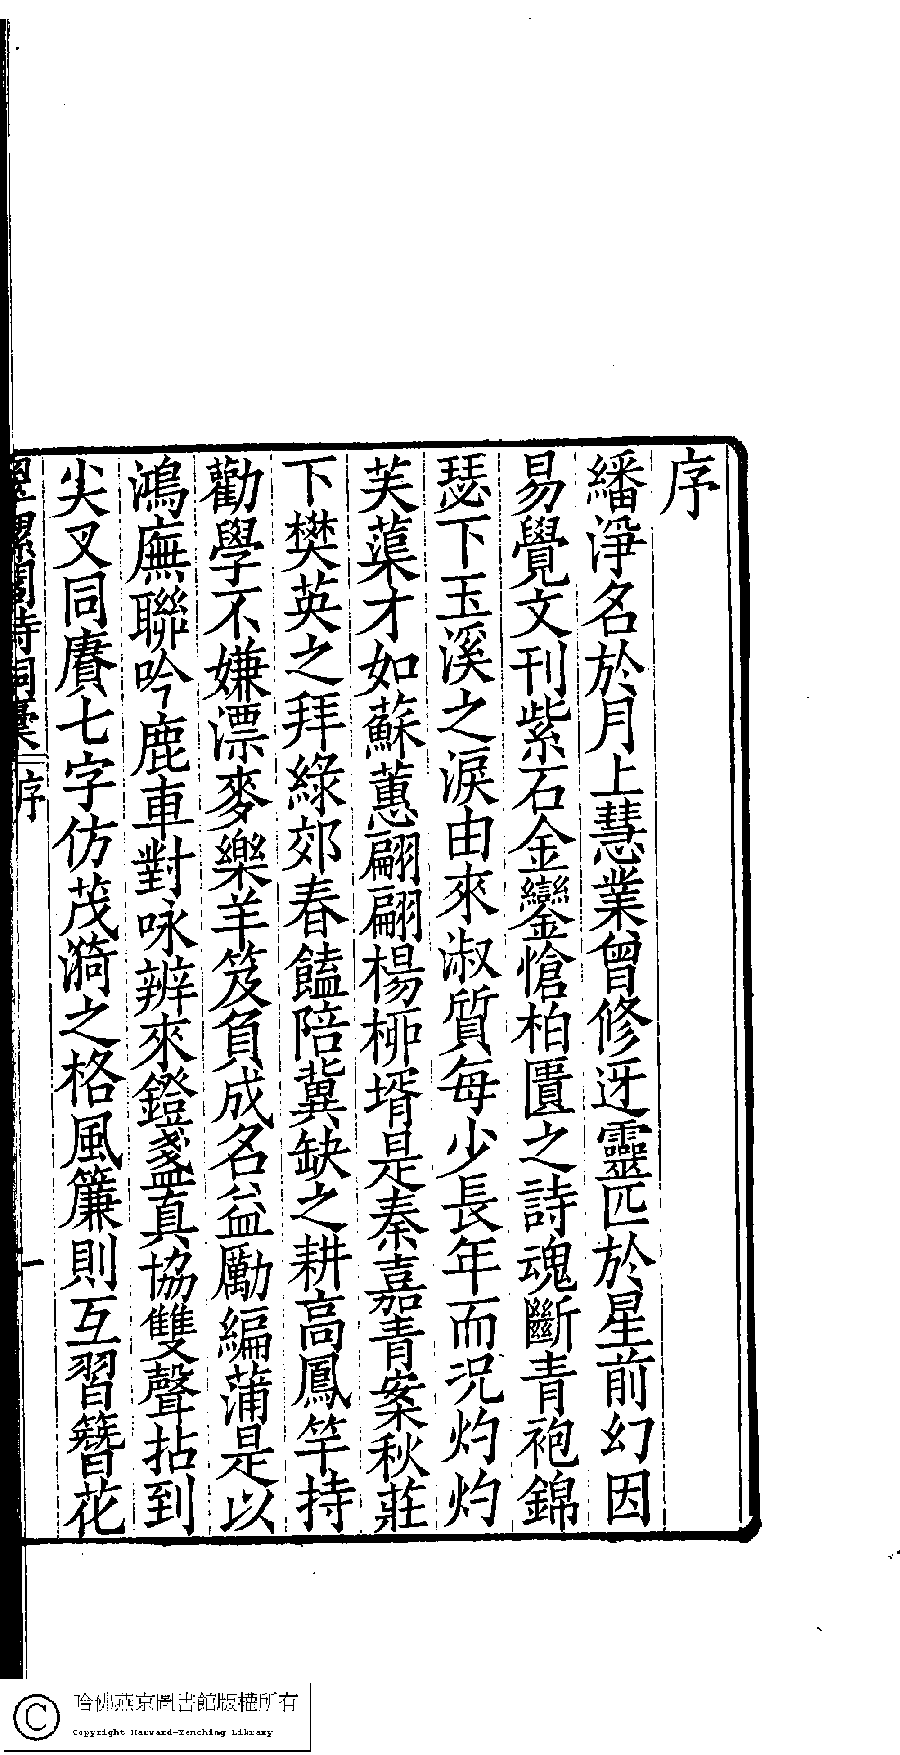 序
繙淨名於月上慧業曾修迓靈匹於星前幻因
易覺文刊紫石金鑾愴柏匱之詩魂斷青袍錦
瑟下玉溪之淚由來淑質每少長年而況灼灼
芙蕖才如蘇蕙翩翩楊柳壻是秦嘉青案秋莊
下樊英之拜綠郊春饁陪冀缺之耕高鳳竿持
勸學不嫌漂麥樂羊笈負成名益勵編蒲是以
鴻廡聯吟鹿車對咏辨來鐙盞真協雙聲拈到
尖叉同賡七字仿茂漪之格風簾則互習簪花
閣詩詞藁 序
一
哈佛燕京圖書館版權所有
Copyright Harvard-Yenching Library